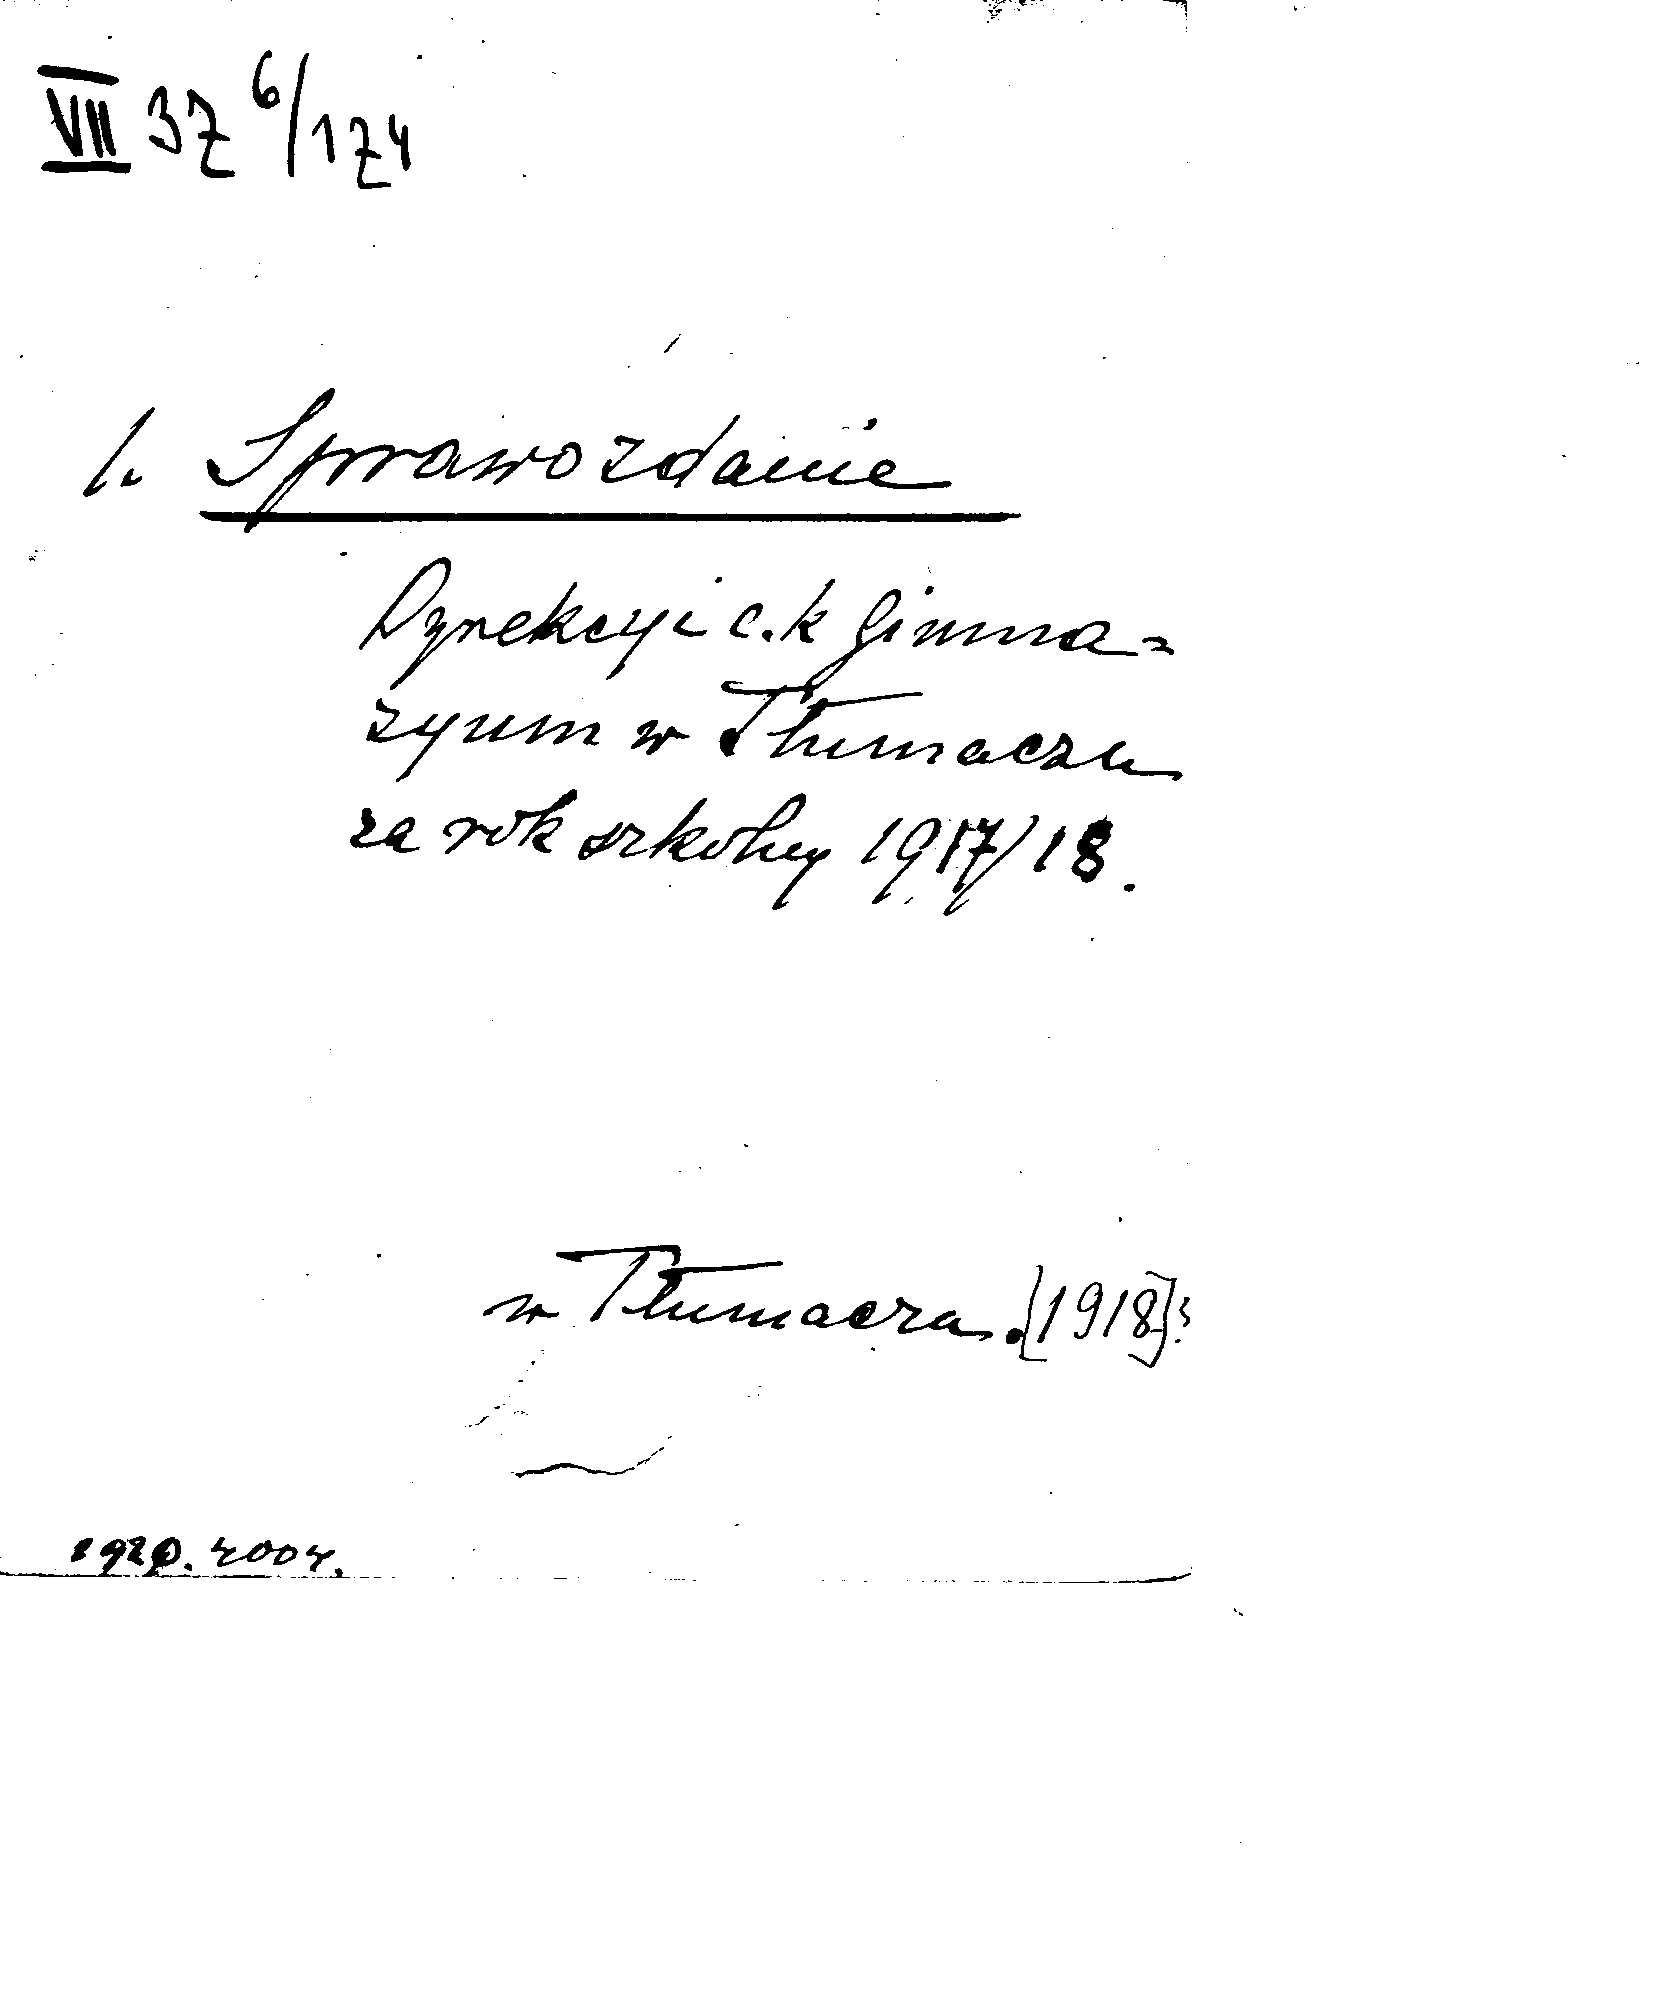 VII 3Z 6/1Z4
1. Sprawozdanie
Dyrekcyi c.k gimna=
zyum w Tłumaczu
za rok szkolny 1917/18.
w Tłumaczu. [1918].
1920. 4004.